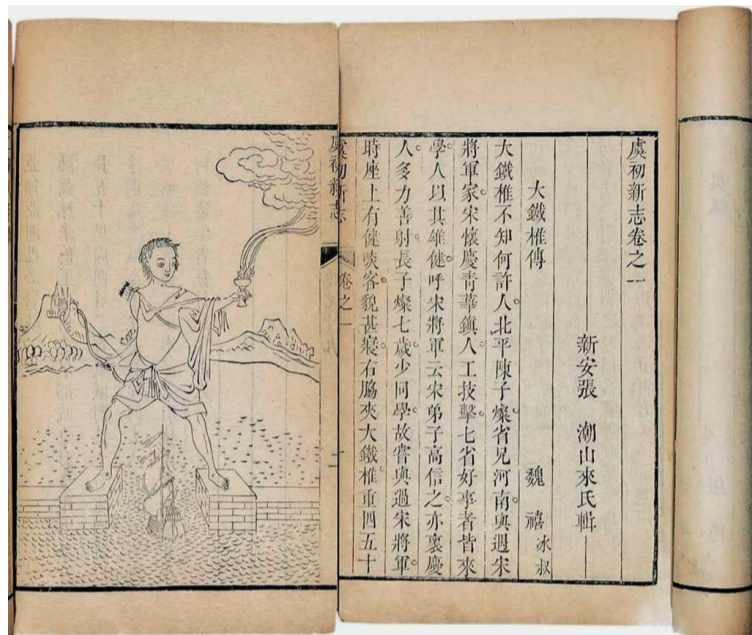 虞初新志卷之一
新安張 潮山來氏輯
大鐵椎傳 魏 禧冰叔
大鐵椎不知何許人北平陳子燦省兄河南與遇宋
將軍家宋懷慶青華鎮人工技擊七省好事者皆來
學人以其雄健呼宋將軍云宋弟子高信之亦裏慶
人多力善射長子燦七歲少同學故嘗與過宋將軍
時座上有健啖客貌甚寢右脇夾大鐵椎重四五十
虞初新志 卷之一